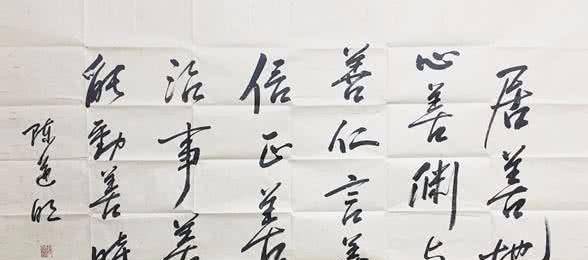 居善地
心善渊与
善仁言善
信正善
治事善
能動善時
陈道明